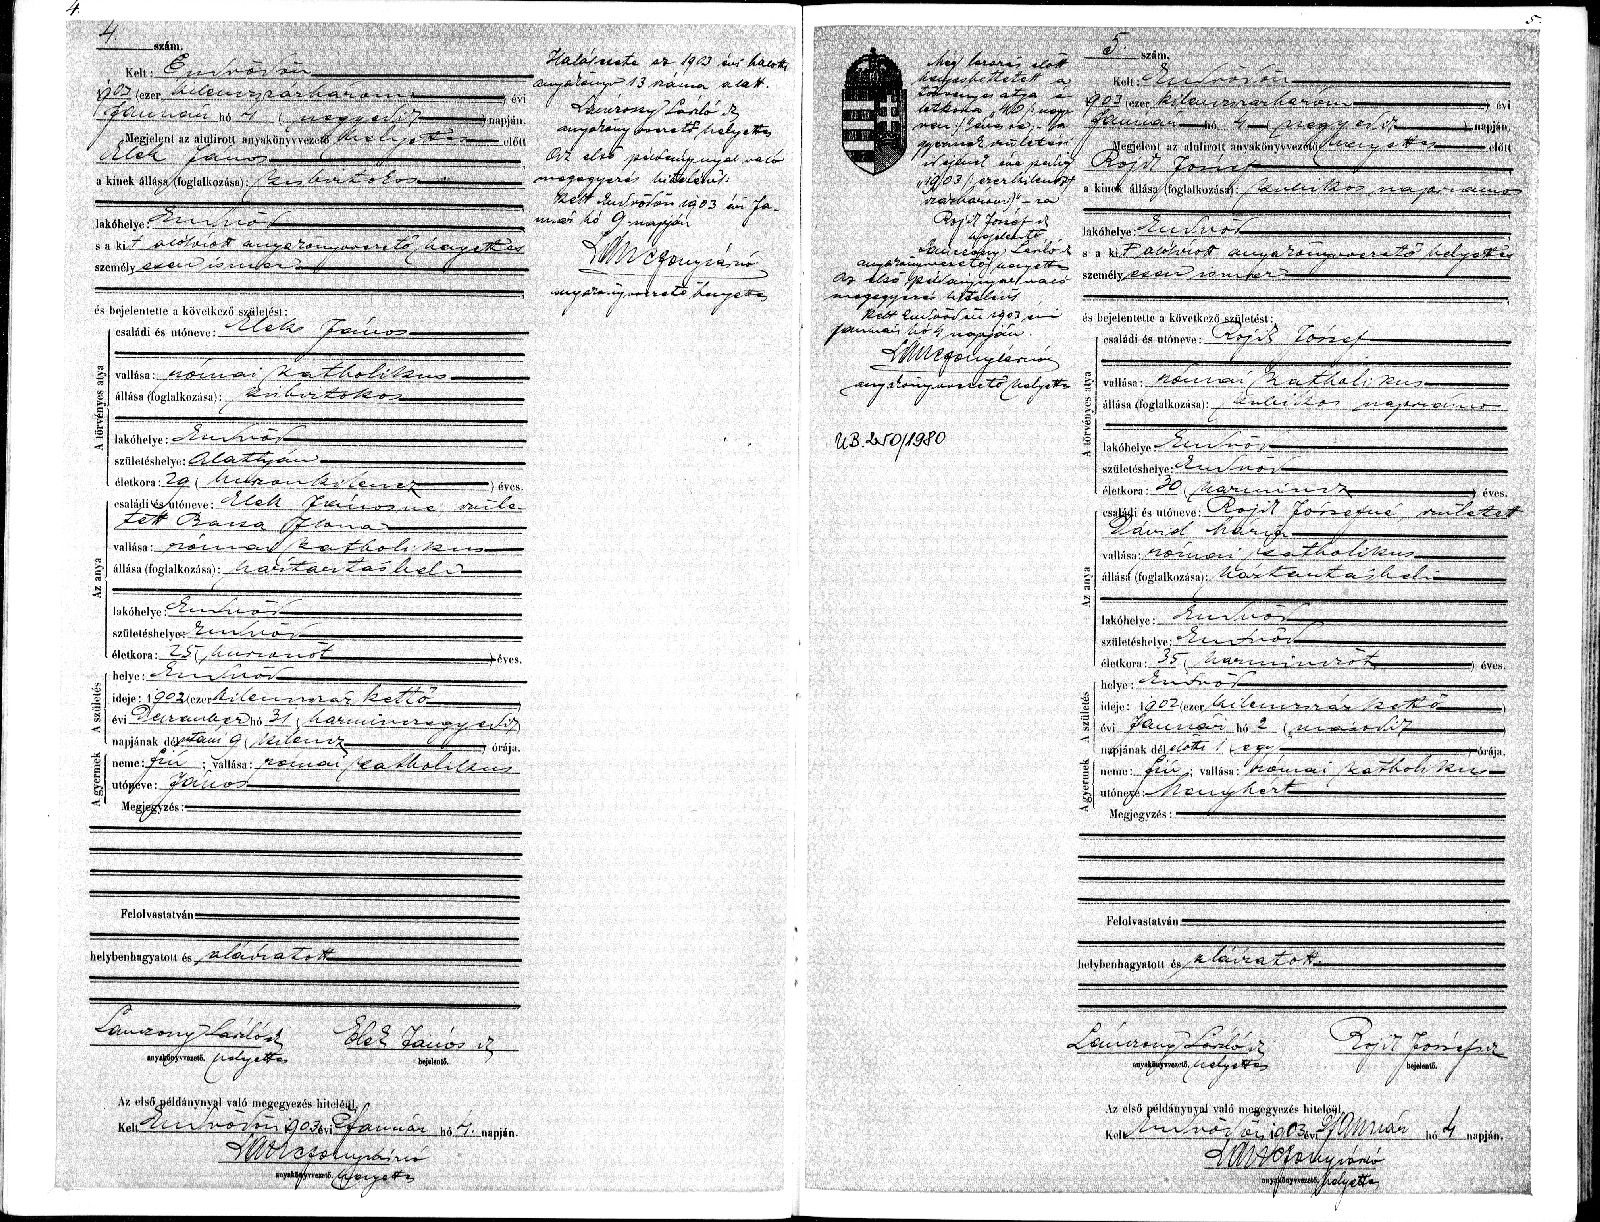 4.
4 szám.
Kelt: Endrődön
1903 (ezer kilenczszázhárom) évi
Január hó 4 (negyedik) napján.
Megjelent az alulirott anyakönyvvezető helyettes előtt
Elek János
a kinek állása (foglalkozása): kisbirtokos
lakóhelye: Endrőd
s a kit alólirott anyakönyvvezető helyettes
személyesen ismer
és bejelentette a következő születést:
A törvényes atya
családi és utóneve: Elek János
vallása: római katholikus
állása (foglalkozása): kisbirtokos
lakóhelye: Endrőd
születéshelye: Alattyán
életkora: 29 (huszonkilencz) éves.
Az anya
családi és utóneve: Elek Jánosné szüle-
tett Barna Ilona
vallása: római katholikus
állása (foglalkozása): háztartásbeli
lakóhelye: Endrőd
születéshelye: Endrőd
életkora: 25 (huszonöt) éves.
A születés
helye: Endrőd
ideje: 1902 (ezer kilenczszáz kettő
évi Deczember hó 31 (harminczegyedik)
napjának délutáni 9 (kilencz) órája.
A gyermek
neme: fiú; vallása: római katholikus
utóneve: János
Megjegyzés:
Felolvastatván
helybenhagyatott és aláiratott
Lánczony László k
anyakönyvvezető. helyettes
Elek János k
bejelentő.
Az első példánynyal való megegyezés hiteléül,
Kelt Endrődön 1903 évi Január hó 4. napján.
anyakönyvvezető. helyettes
Halálesete az 1903 évi halotti
anyakönyv 13 száma alatt.
Lánczony László k
anyakönyvvezető helyettes
Az első példánynyal való
megegyezés hiteléül:
Kelt Endrődön 1903 évi Ja-
nuár hó 9 napján
anyakönyvvezető helyettes
5
Még lezárás előtt
törvényes atya
életkora "40"
gyermek születési
idejének éve pedig
"1903 (ezerkilencz-
százhárom)" -ra
Rojik József k
bejelentő
Lánczony László k
anyakönyvvezető helyettes
Az első példánynyal való
megegyezés hiteléül
Kelt Endrődön 1903 évi
Január hó 4 napján.
anyakönyvvezető helyettes
UB.250/1980
5 szám.
Kelt: Endrődön
1903 (ezer kilenczszázhárom) évi
Január hó 4 (negyedik) napján,
Megjelent az alulirott anyakönyvvezető helyettes előtt
Rojik József
a kinek állása (foglalkozása): kubikos napszámos
lakóhelye: Endrőd
s a kit alólirott anyakönyvvezető helyettes
személyesen ismer
és bejelentette a következő születést:
A törvényes atya
családi és utóneve: Rojik József
vallása: római katholikus
állása (foglalkozása): kubikos napszámos
lakóhelye: Endrőd
születéshelye: Endrőd
életkora: 30 (harmincz) éves.
Az anya
családi és utóneve: Rojik Józsefné született
Dávid Mária
vallása: római katholikus
állása (foglalkozása): háztartásbeli
lakóhelye: Endrőd
születéshelye: Endrőd
életkora: 35 (harminczöt) éves.
A születés
helye: Endrőd
ideje: 1902 (ezer kilenczszáz kettő)
évi Január hó 2 (második)
napjának délelőtti 1 (egy) órája.
A gyermek
neme: fiú; vallása: római katholikus
utóneve: Menyhért
Megjegyzés:
Felolvastatván
helybenhagyatott és aláiratott
Lánczony László k
anyakönyvvezető. helyettes
Rojik József k
bejelentő.
Az első példánynyal való megegyezés hiteléül.
Kelt Endrődön 1903 évi Január hó 4 napján.
anyakönyvvezető. helyettes